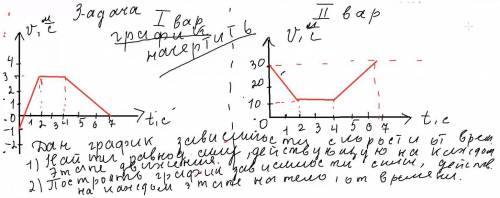 3-адача I вар II вар
график
начертить
v, м/с
4
3
2
1
0
-1
-2
1 2 3 4 5 6 7
t, с
V, м/с
30
20
10
1 2 3 4 5 6 7
t, с
Дан график зависимости скорости от врем
1) Найти равнод. силу, действующую на каждом
Этапе движения.
2) Построить график зависимости силы, действ.
на каждом этапе на тело, от времени.